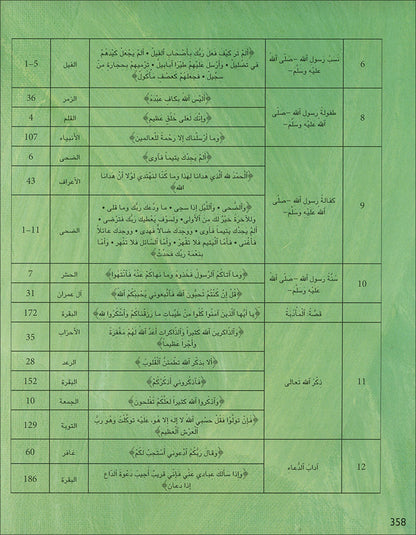 6
نسب رسول الله –صلّى الله
عليه وسلّم–
﴿ألم تر كيف فعل ربك بأصحاب الفيل • ألم يجعل كيدهم
في تضليل • وأرسل عليهم طيرا أبابيل • ترميهم بحجارة من
سجيل • فجعلهم كعصف مأكول﴾
الفيل
1–5
8
طفولة رسول الله –صلّى
الله عليه وسلّم–
﴿أليس الله بكاف عبده﴾
الزمر
36
﴿وإنك لعلى خلق عظيم﴾
القلم
4
﴿وما أرسلناك إلا رحمة للعالمين﴾
الأنبياء
107
9
كفالة رسول الله –صلّى الله
عليه وسلّم–
﴿ألم يجدك يتيما فآوى﴾
الضحى
6
﴿الحمد لله الذي هدانا لهذا وما كنا لنهتدي لولا أن هدانا
الله﴾
الأعراف
43
﴿والضحى • والليل إذا سجى • ما ودعك ربك وما قلى •
وللآخرة خير لك من الأولى • ولسوف يعطيك ربك فترضى •
ألم يجدك يتيما فآوى • ووجدك ضالا فهدى • ووجدك عائلا
فأغنى • فأما اليتيم فلا تقهر • وأما السائل فلا تنهر • وأما
بنعمة ربك فحدث﴾
الضحى
1–11
10
سنّة رسول الله –صلّى الله
عليه وسلّم–
﴿وما آتاكم الرسول فخذوه وما نهاكم عنه فانتهوا﴾
الحشر
7
﴿قل إن كنتم تحبون الله فاتبعوني يحببكم الله﴾
آل عمران
31
قصّة: المأدبة
﴿يا أيها الذين آمنوا كلوا من طيبات ما رزقناكم واشكروا لله﴾
البقرة
172
11
ذكر الله تعالى
﴿والذاكرين الله كثيرا والذاكرات أعد الله لهم مغفرة
وأجرا عظيما﴾
الأحزاب
35
﴿ألا بذكر الله تطمئن القلوب﴾
الرعد
28
﴿فاذكروني أذكركم﴾
البقرة
152
﴿واذكروا الله كثيرا لعلكم تفلحون﴾
الجمعة
10
﴿فإن تولوا فقل حسبي الله لا إله إلا هو، عليه توكلت وهو رب
العرش العظيم﴾
التوبة
129
12
آداب الدّعاء
﴿وقال ربكم ادعوني أستجب لكم﴾
غافر
60
﴿وإذا سألك عبادي عني فإني قريب أجيب دعوة الداع
إذا دعان﴾
البقرة
186
358